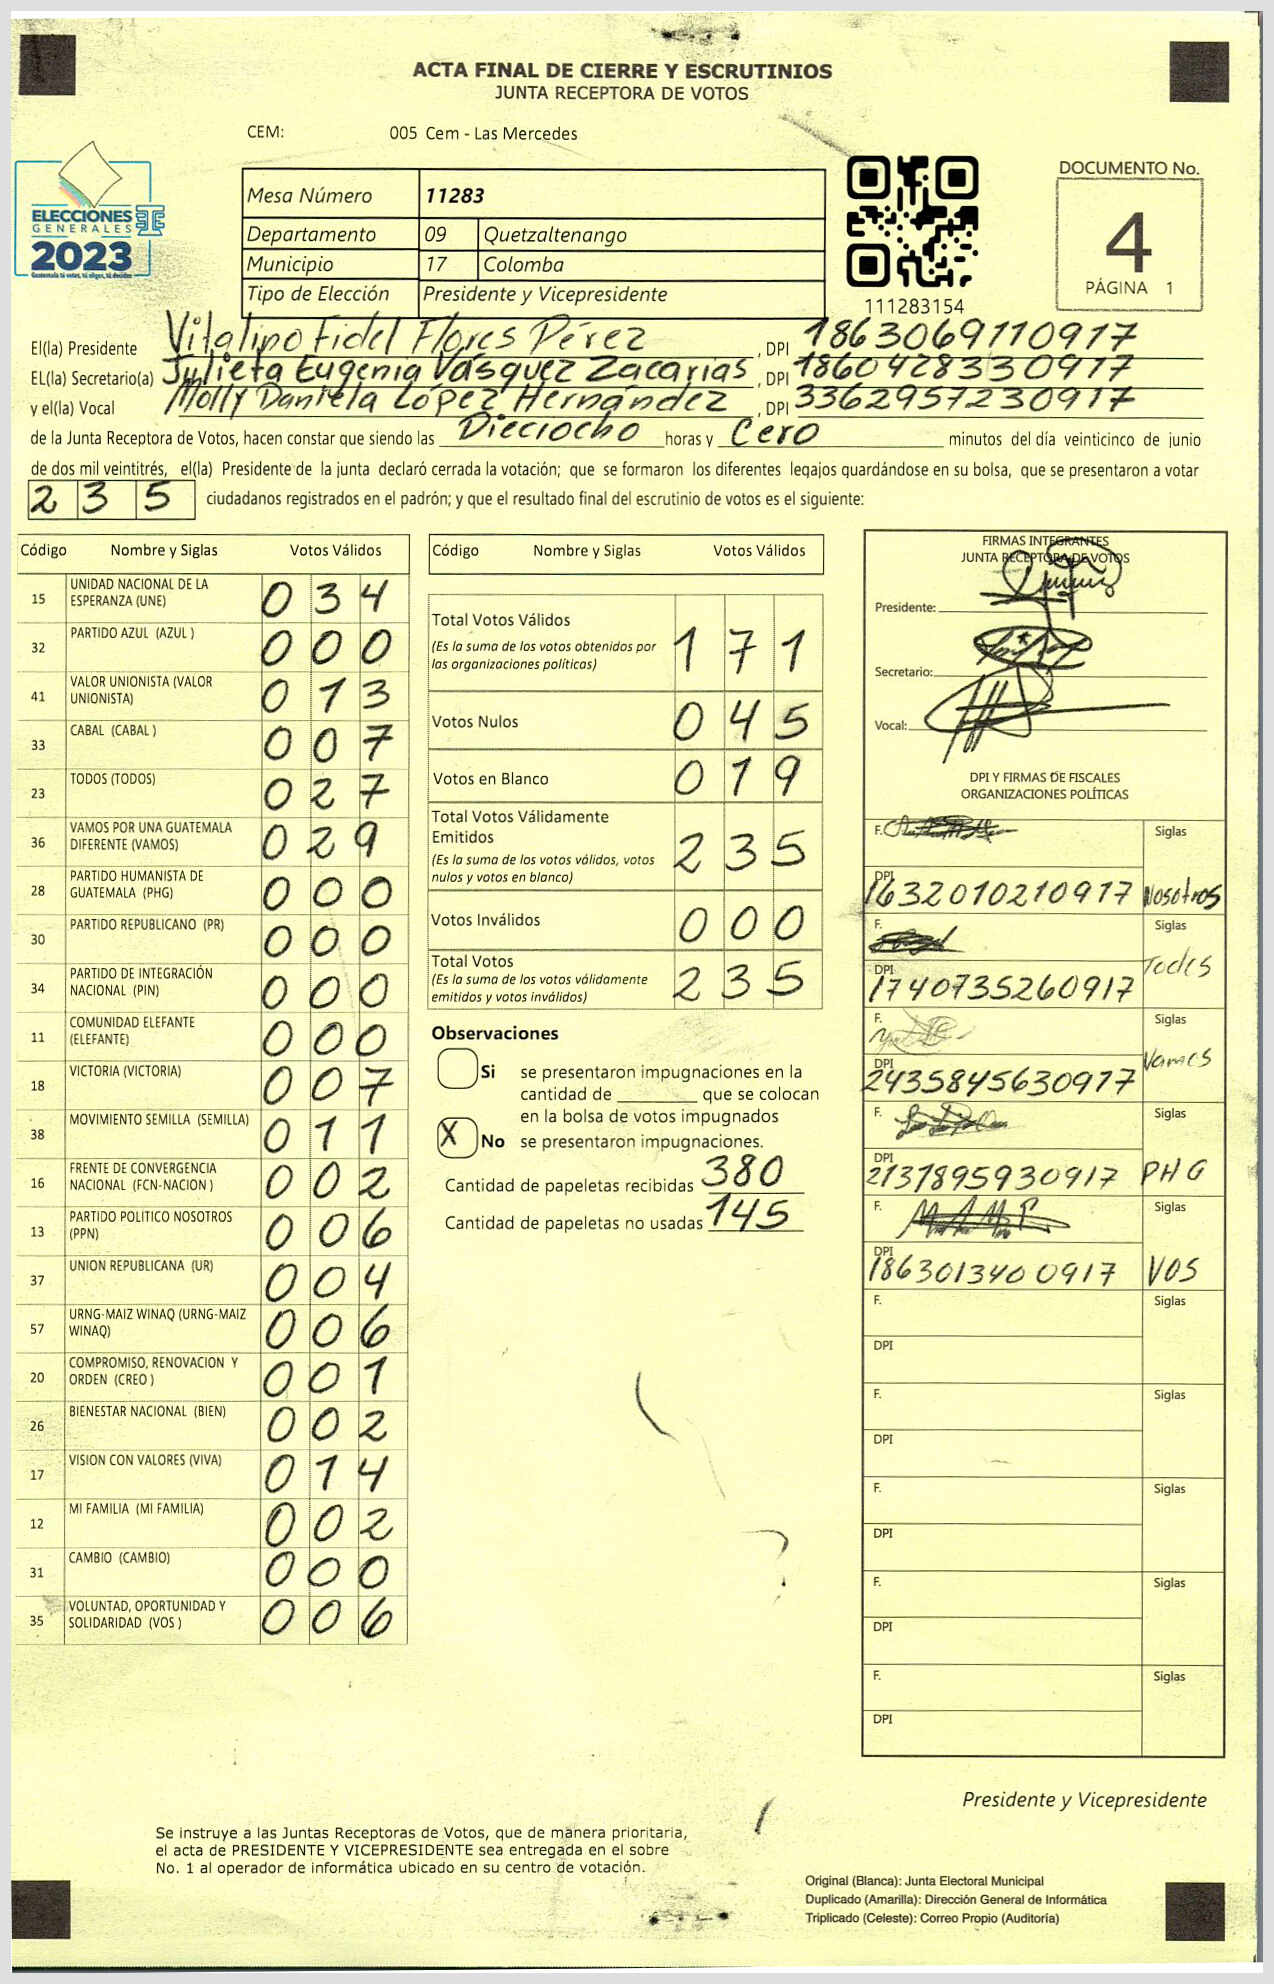 ACTA FINAL DE CIERRE Y ESCRUTINIOS
JUNTA RECEPTORA DE VOTOS
CEM: 005 Cem - Las Mercedes
ELECCIONES
GENERALES
2023
Guatemala tú votas, tú eliges, tú decides
Mesa Número 11283
Departamento 09 Quetzaltenango
Municipio 17 Colomba
Tipo de Elección Presidente y Vicepresidente
111283154
DOCUMENTO No.
4
PÁGINA 1
El(la) Presidente Vitalino Fidel Flores Pérez , DPI 1863069110917
EL(la) Secretario(a) Julieta Eugenia Vásquez Zacarias , DPI 1860428330917
y el(la) Vocal Molly Daniela López Hernández , DPI 3362957230917
de la Junta Receptora de Votos, hacen constar que siendo las Dieciocho horas y Cero minutos del día veinticinco de junio
de dos mil veintitrés, el(la) Presidente de la junta declaró cerrada la votación; que se formaron los diferentes legajos guardándose en su bolsa, que se presentaron a votar
235 ciudadanos registrados en el padrón; y que el resultado final del escrutinio de votos es el siguiente:
Código Nombre y Siglas Votos Válidos
15 UNIDAD NACIONAL DE LA ESPERANZA (UNE) 034
32 PARTIDO AZUL (AZUL ) 000
41 VALOR UNIONISTA (VALOR UNIONISTA) 013
33 CABAL (CABAL ) 007
23 TODOS (TODOS) 027
36 VAMOS POR UNA GUATEMALA DIFERENTE (VAMOS) 029
28 PARTIDO HUMANISTA DE GUATEMALA (PHG) 000
30 PARTIDO REPUBLICANO (PR) 000
34 PARTIDO DE INTEGRACIÓN NACIONAL (PIN) 000
11 COMUNIDAD ELEFANTE (ELEFANTE) 000
18 VICTORIA (VICTORIA) 007
38 MOVIMIENTO SEMILLA (SEMILLA) 011
16 FRENTE DE CONVERGENCIA NACIONAL (FCN-NACION ) 002
13 PARTIDO POLITICO NOSOTROS (PPN) 006
37 UNION REPUBLICANA (UR) 004
57 URNG-MAIZ WINAQ (URNG-MAIZ WINAQ) 006
20 COMPROMISO, RENOVACION Y ORDEN (CREO ) 001
26 BIENESTAR NACIONAL (BIEN) 002
17 VISION CON VALORES (VIVA) 014
12 MI FAMILIA (MI FAMILIA) 002
31 CAMBIO (CAMBIO) 000
35 VOLUNTAD, OPORTUNIDAD Y SOLIDARIDAD (VOS ) 006
Código Nombre y Siglas Votos Válidos
Total Votos Válidos 171
(Es la suma de los votos obtenidos por
las organizaciones políticas)
Votos Nulos 045
Votos en Blanco 019
Total Votos Válidamente
Emitidos 235
(Es la suma de los votos válidos, votos
nulos y votos en blanco)
Votos Inválidos 000
Total Votos 235
(Es la suma de los votos válidamente
emitidos y votos inválidos)
Observaciones
Si se presentaron impugnaciones en la
cantidad de ________ que se colocan
en la bolsa de votos impugnados
X No se presentaron impugnaciones.
Cantidad de papeletas recibidas 380
Cantidad de papeletas no usadas 145
FIRMAS INTEGRANTES
JUNTA RECEPTORA DE VOTOS
Presidente:
Secretario:
Vocal:
DPI Y FIRMAS DE FISCALES
ORGANIZACIONES POLÍTICAS
F. Siglas
DPI 1632010210917 Nosotros
F. Siglas
DPI 1740735260917 Todos
F. Siglas
DPI 2435845630917 Vamos
F. Siglas
DPI 2131895930917 PHG
F. Siglas
DPI 1863013400917 VOS
F. Siglas
DPI
F. Siglas
DPI
F. Siglas
DPI
F. Siglas
DPI
F. Siglas
DPI
Presidente y Vicepresidente
Se instruye a las Juntas Receptoras de Votos, que de manera prioritaria,
el acta de PRESIDENTE Y VICEPRESIDENTE sea entregada en el sobre
No. 1 al operador de informática ubicado en su centro de votación.
Original (Blanca): Junta Electoral Municipal
Duplicado (Amarilla): Dirección General de Informática
Triplicado (Celeste): Correo Propio (Auditoría)